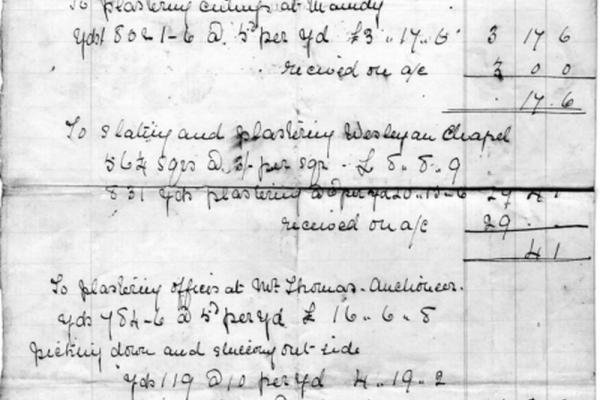 To plastering ceilings at Maindy
yds 802 1-6 @ 5d per yd £3 " 17 " 6 3 17 6
received on a/c 3 0 0
17 . 6
To slating and plastering Wesleyan Chapel
56¼ sqrs @ 3/- per sqr - £ 8 " 8 " 9
831 yds plastering @ 6 per yd 20 " 15 - 6 29 4 1
received on a/c 29 . .
4 1
To plastering offices at Mr Thomas - Auctioneer.
yds 784-6 @ 5d per yd £ 16 " 6 " 8
picking down and stuccoing out side
yds 119 @ 10 per yd 4 " 19 " 2